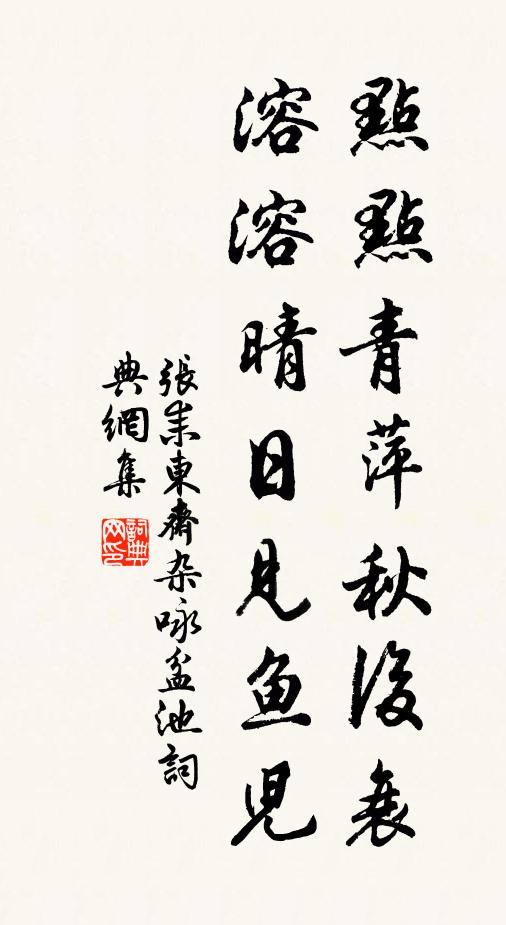 點點青萍秋後衰
溶溶晴日見魚兒
張耒東齋杂咏盆池詞
典網集
詞典网印